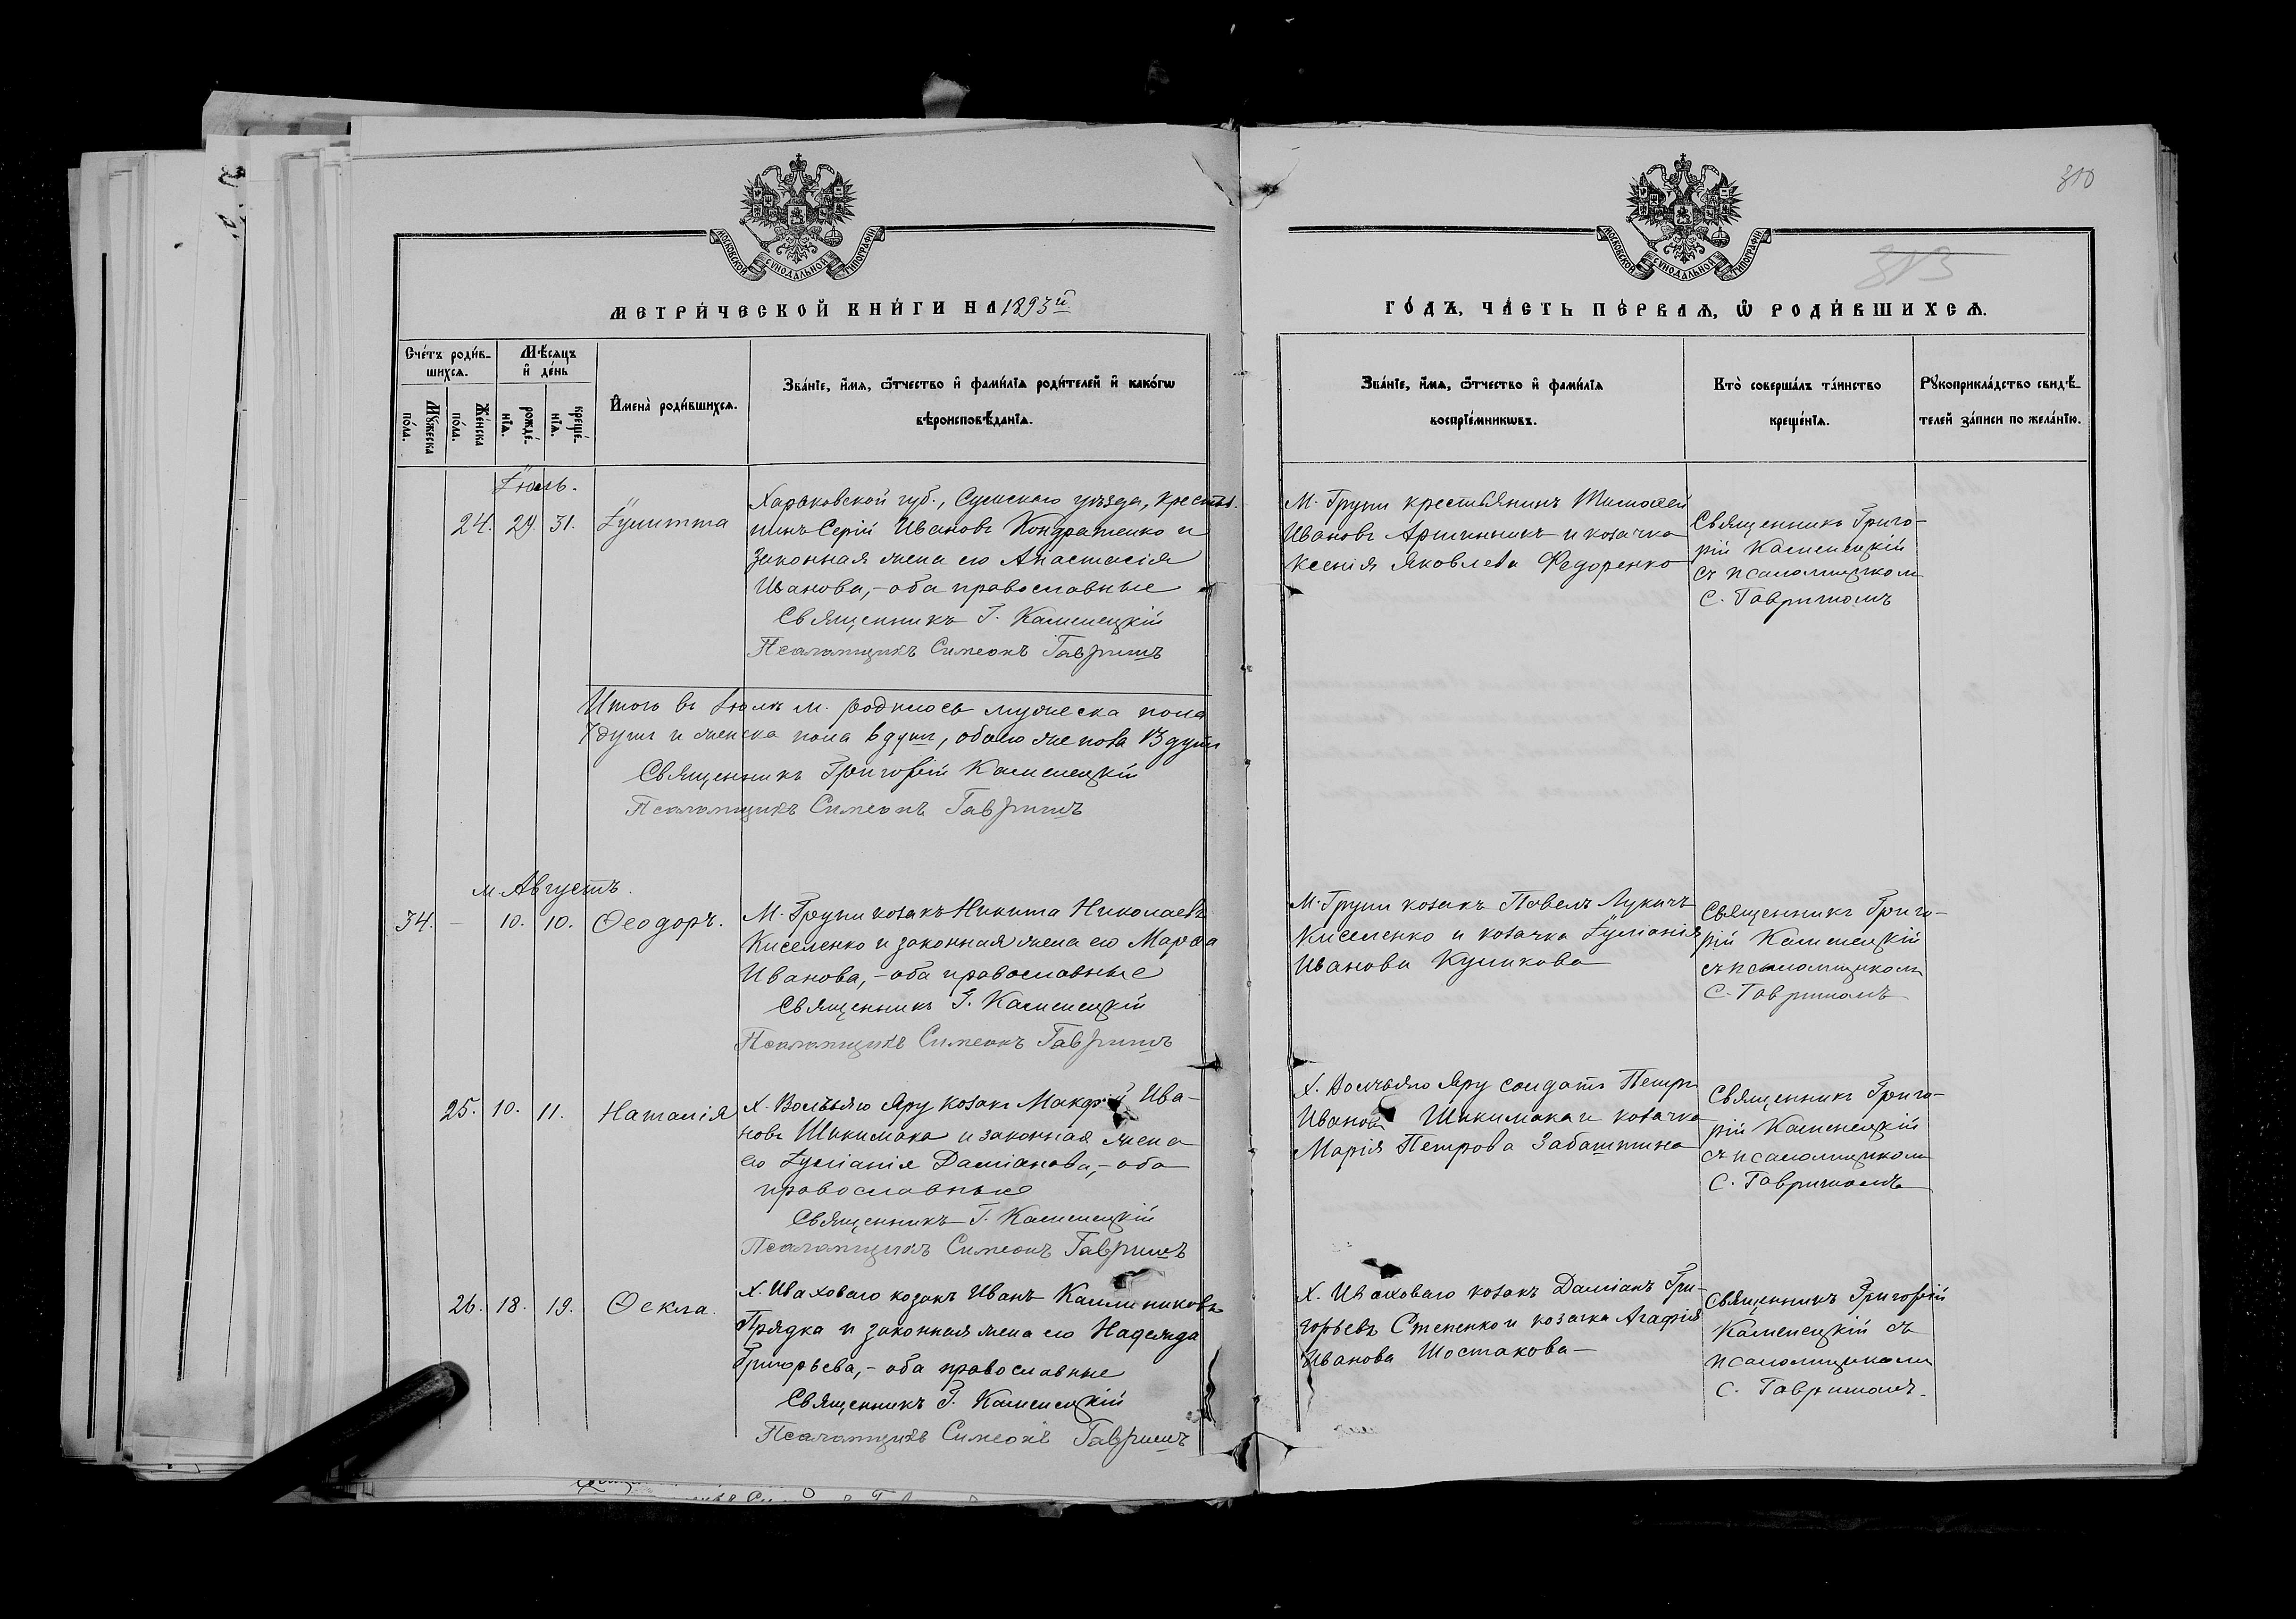 310
313
МОСКОВСКОЙ СѴНОДАЛЬНОЙ ТИПОГРАФІИ
МОСКОВСКОЙ СѴНОДАЛЬНОЙ ТИПОГРАФІИ
МЕТРИ́ЧЕСКОЙ КНИ́ГИ НА 1893й
ГО́ДЪ, ЧА́СТЬ ПЕ́РВАѦ, Ѡ҆ РОДИ́ВШИХСѦ.
Сче́тъ роди́в-
шихсѧ.
Мѣ́сѧцъ
и҆ де́нь
Мꙋ́жеска
по́ла.
Же́нска
по́ла.
рожде́-
нїѧ.
креще́-
нїѧ.
И҆мена̀ роди́вшихсѧ.
Зва́нїе, и҆́мѧ, ѻ҆́тчество и҆ фами́лїѧ роди́телей и҆ како́гѡ
вѣроисповѣ́данїѧ.
Зва́нїе, и҆́мѧ, ѻ҆́тчество и҆ фами́лїѧ
воспрїе́мникѡвъ.
Кто̀ соверша́лъ та́инство
креще́нїѧ.
Рꙋкоприкла́дство свидѣ́-
телей за́писи по жела́нїю.
Іюль.
24. 29. 31. Іулитта
Харьковской губ., Сумскаго уѣзда, крестья-
нинъ Серій Ивановъ Кондратенко и
законная жена его Анастасія
Иванова, - оба православные
Священникъ Г. Каменецкій
Псаломщикъ Симеонъ Гавришъ
М. Груни крестьянинъ Тимофей
Ивановъ Аршинникъ и козачка
Ксенія Яковлева Федоренко
Священникъ Григо-
рій Каменецкій
съ псаломщикомъ
С. Гавришомъ
Итого въ Іюлѣ м. родилось мужеска пола
7 душъ и женска пола 6 душъ, обоего же пола 13 душъ
Священникъ Григорій Каменецкій
Псаломщикъ Симеонъ Гавришъ
м. Августъ.
34. — 10. 10. Ѳеодоръ.
М. Груни козакъ Никита Николаевъ
Киселенко и законная жена его Марѳа
Иванова, - оба православные
Священникъ Г. Каменецкій
Псаломщикъ Симеонъ Гавришъ
М. Груни козакъ Павелъ Лукичъ
Киселенко и козачка Іуліанія
Иванова Куликова
Священникъ Григо-
рій Каменецкій
съ псаломщикомъ
С. Гавришомъ
25. 10. 11. Наталія
Х. Волчьяго Яру козакъ Макарій Ива-
новъ Шикимака и законная жена
его Іуліанія Даміанова, - оба
православные
Священникъ Г. Каменецкій
Псаломщикъ Симеонъ Гавришъ
Х. Волчьяго Яру солдатъ Петръ
Ивановъ Шикимака и козачка
Марія Петрова Забаштина
Священникъ Григо-
рій Каменецкій
съ псаломщикомъ
С. Гавришомъ
26. 18. 19. Ѳекла.
Х. Иваховаго козакъ Иванъ Каллиниковъ
Прядка и законная жена его Надежда
Григорьева, - оба православные
Священникъ Г. Каменецкій
Псаломщикъ Симеонъ Гавришъ
Х. Иваховаго козакъ Даміанъ Гри-
горьевъ Степенко и козачка Агафія
Иванова Шостакова
Священникъ Григорій
Каменецкій съ
псаломщикомъ
С. Гавришомъ.